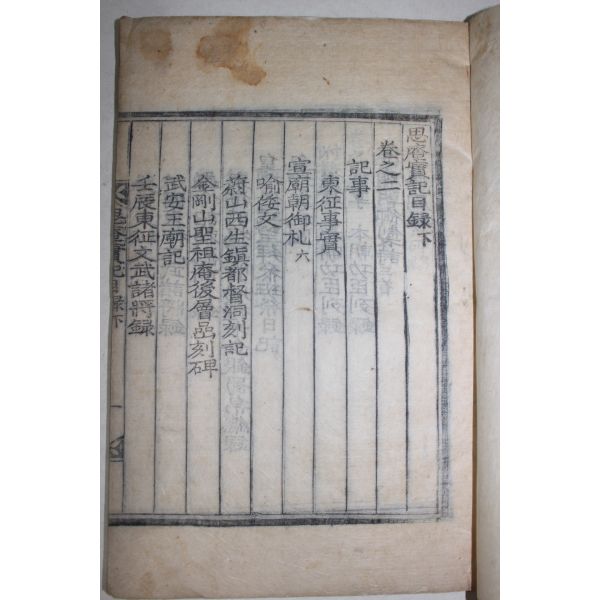 思庵實記目録下
卷之二
記事
東征事實
宣廟朝御札六
喩倭文
蔚山西生鎭都督洞刻記
金剛山聖祖庵後層嵒刻碑
武安王廟記
壬辰東征文武諸將録
思庵實記目録下
一